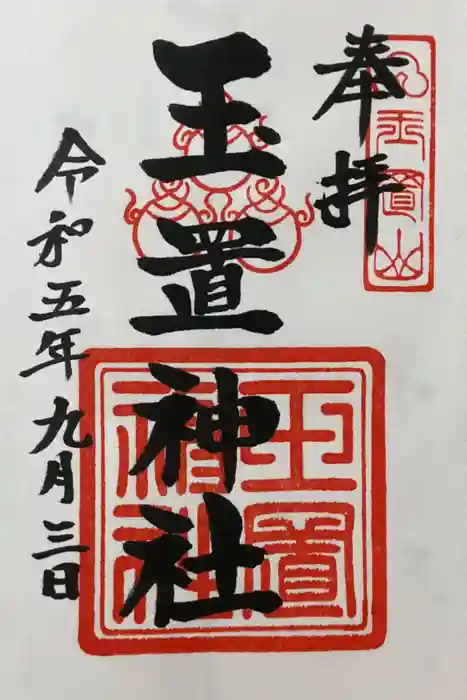 奉拝
玉置山
玉置神社
玉置神社
令和五年九月三日